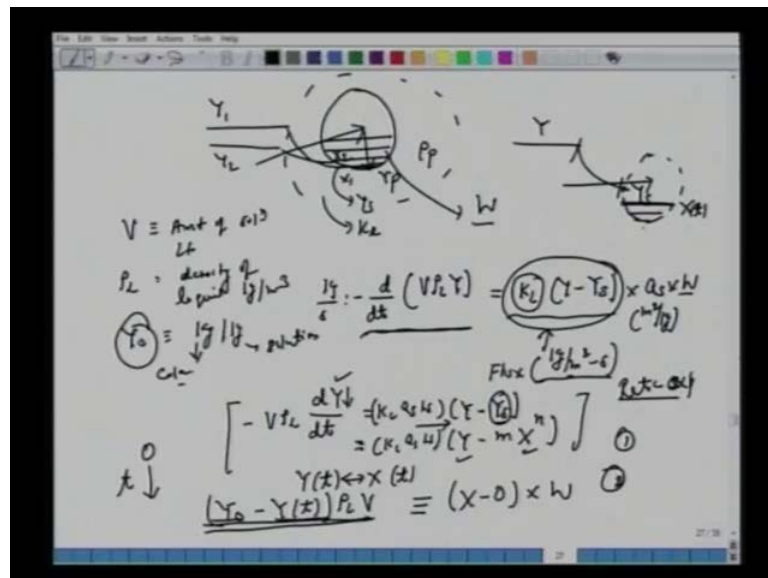 File Edit View Insert Actions Tools Help
Y₁
Y₂
x₁
Y_s
K_L
r_p
ρ_p
W
Y
Y_s
X(t)
V ≡ Amt of sol³
Lt
ρ_L = density of
liquid kg/m³
Y₀ ≡ kg/kg → solution
Color
kg/s : - d/dt (Vρ_L Y) = K_L (Y - Y_s) × a_s × W
(m²/g)
Flux (kg/m²-s)
Rate
[ - Vρ_L dY/dt = (K_L a_s W) (Y - Y_s)
= (K_L a_s W) (Y - m Xⁿ) ] ①
0
t ↓
Y(t) ↔ X(t)
(Y₀ - Y(t)) ρ_L V ≡ (X - 0) × W ②
27/38
27